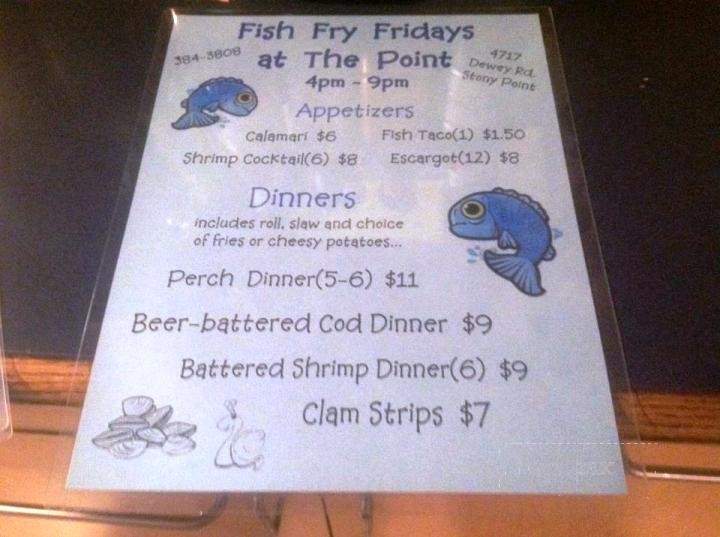 Fish Fry Fridays
at The Point
384-3808
4717
Dewey Rd.
Stony Point
4pm - 9pm
Appetizers
Calamari $6 Fish Taco(1) $1.50
Shrimp Cocktail(6) $8 Escargot(12) $8
Dinners
includes roll, slaw and choice
of fries or cheesy potatoes...
Perch Dinner(5-6) $11
Beer-battered Cod Dinner $9
Battered Shrimp Dinner(6) $9
Clam Strips $7